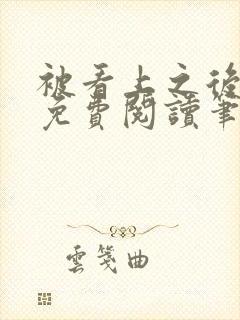 被看上之後
免費閱讀筆
雲箋曲